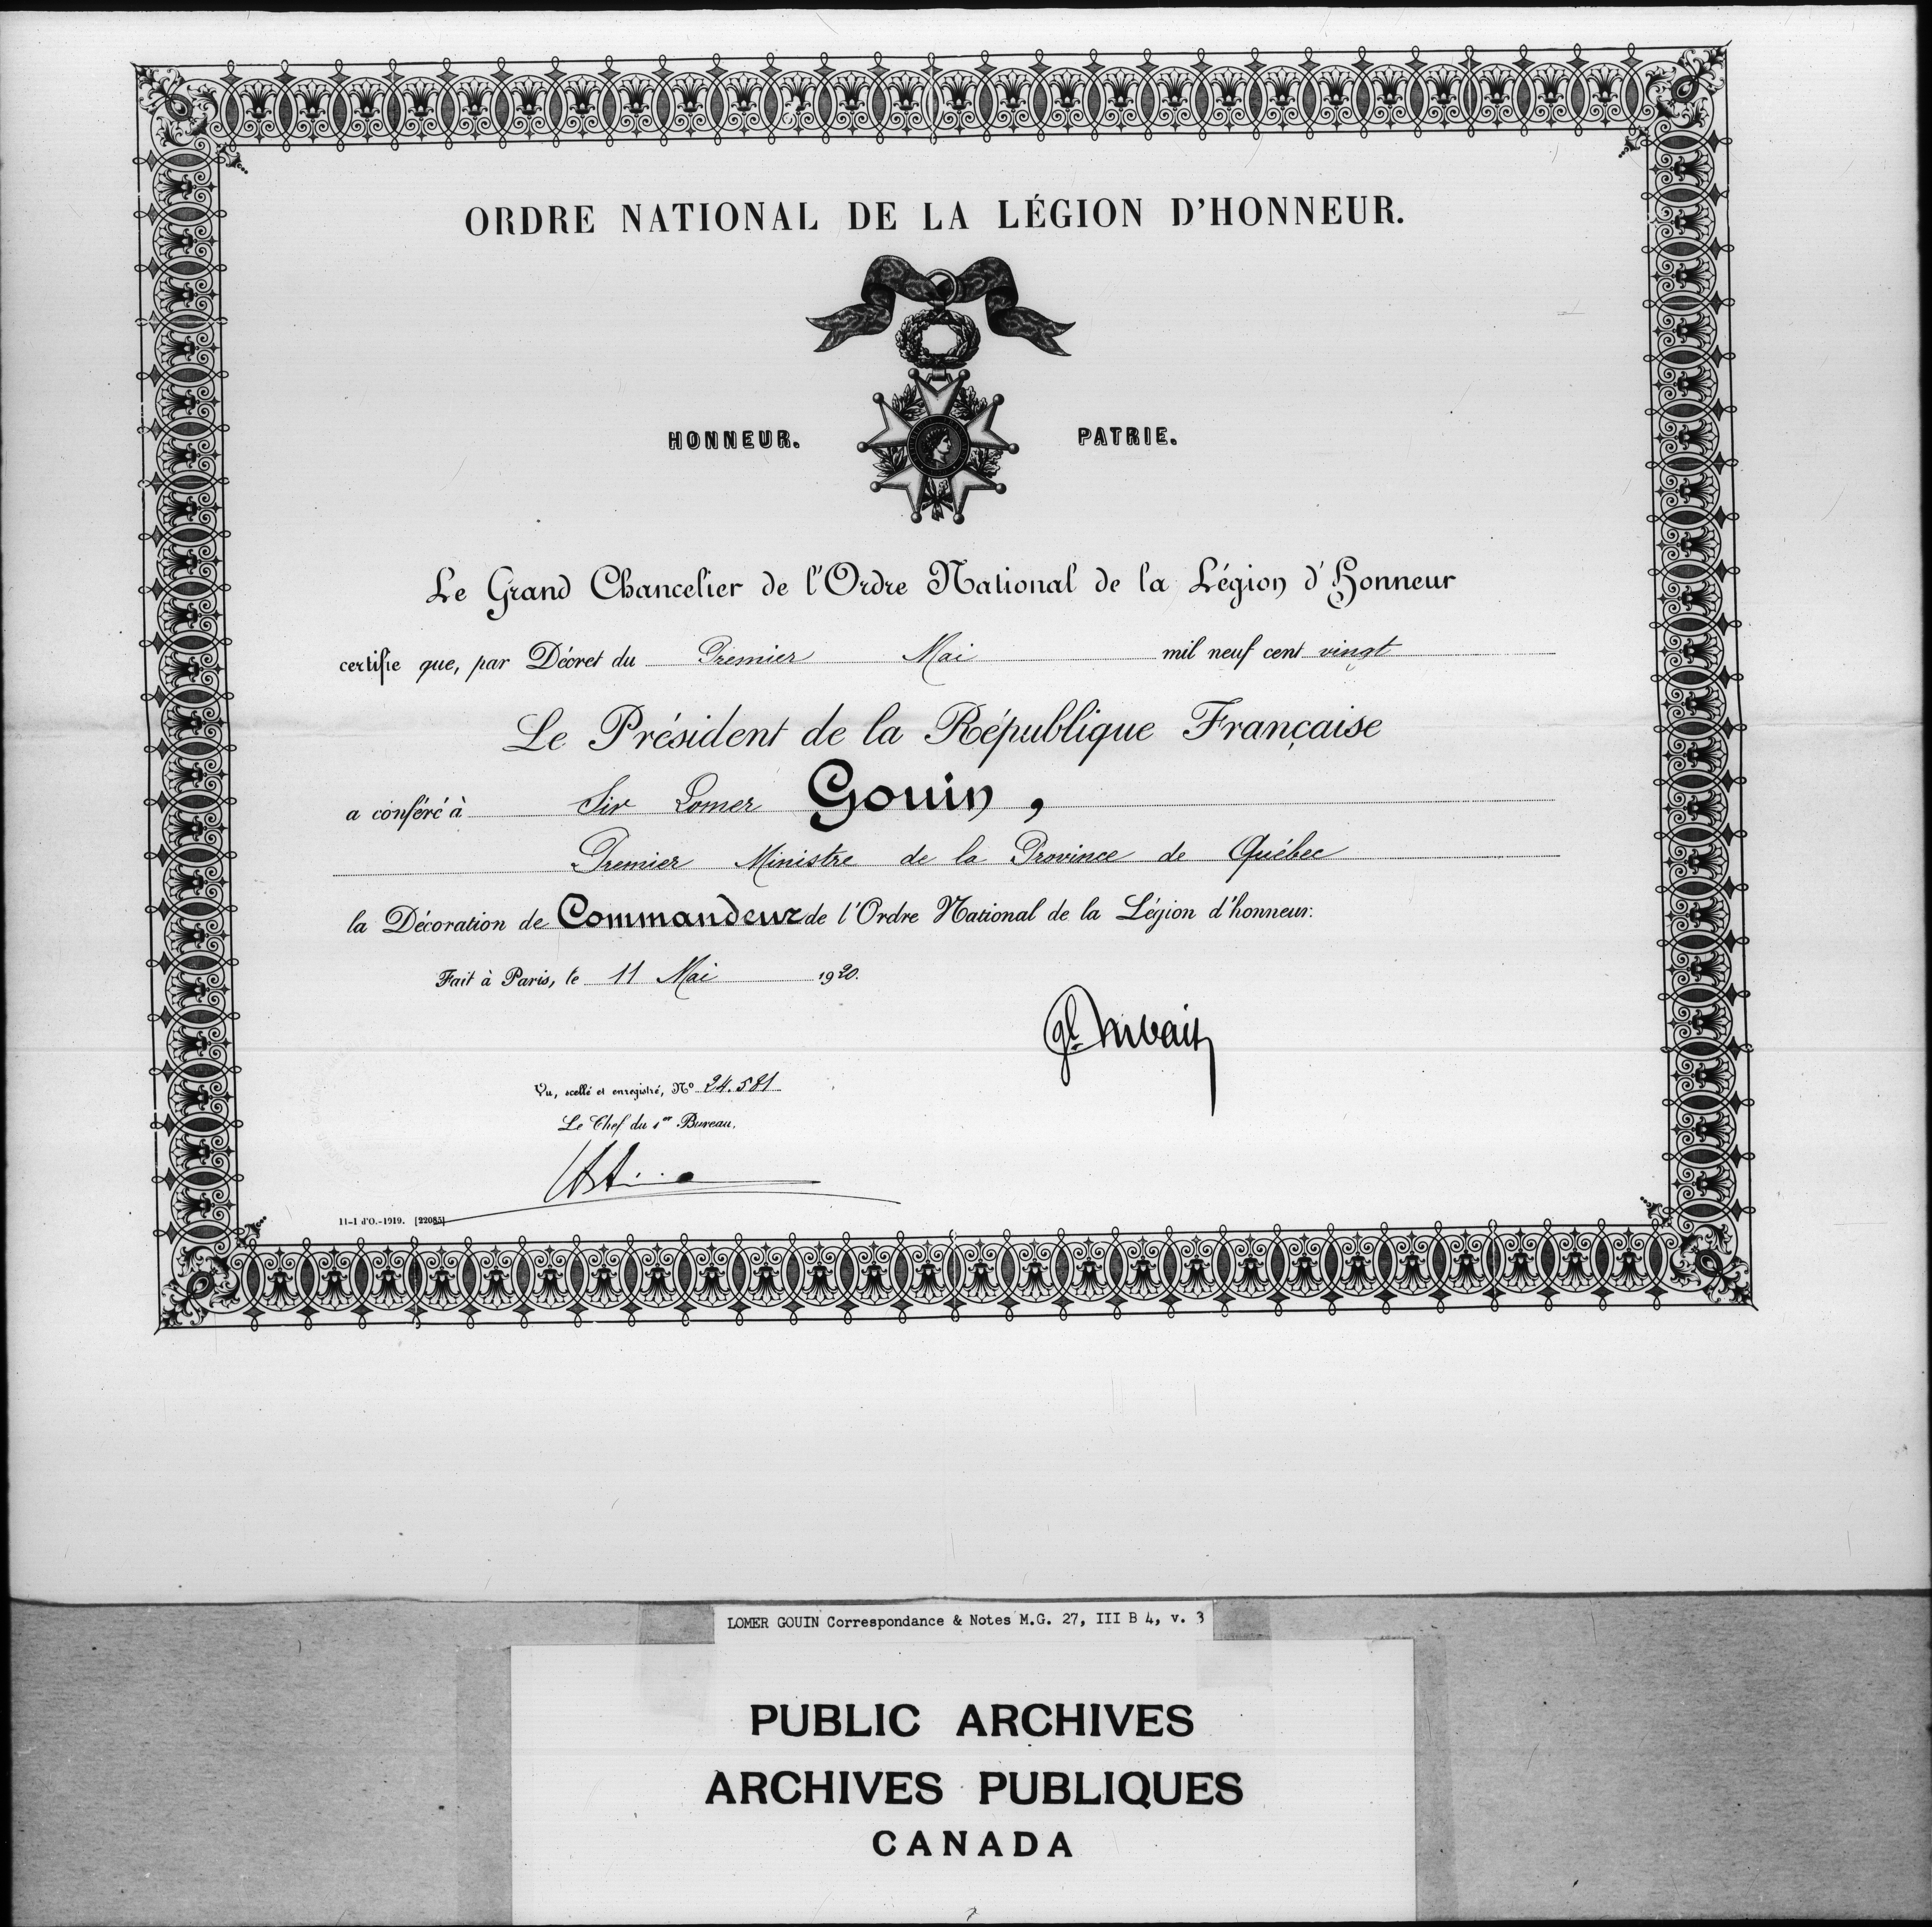 ORDRE NATIONAL DE LA LÉGION D'HONNEUR.
HONNEUR. PATRIE.
Le Grand Chancelier de l'Ordre National de la Légion d'Honneur
certifie que, par Décret du Premier Mai mil neuf cent vingt
Le Président de la République Française
a conféré à Sir Lomer Gouin,
Premier Ministre de la Province de Québec
la Décoration de Commandeur de l'Ordre National de la Légion d'honneur.
Fait à Paris, le 11 Mai 1920.
Gl.
Vu, scellé et enregistré, No 24.581
Le Chef du 1er Bureau,
11-1 d'O.-1919. [22085]
LOMER GOUIN Correspondance & Notes M.G. 27, III B 4, v. 3
PUBLIC ARCHIVES
ARCHIVES PUBLIQUES
CANADA